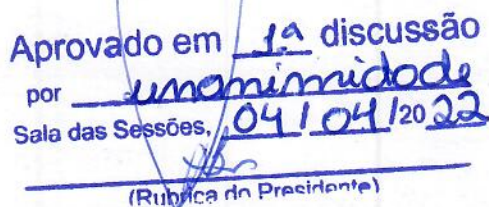 Aprovado em 1ª discussão
por unanimidade
Sala das Sessões, 04/04/2022
(Rubrica do Presidente)